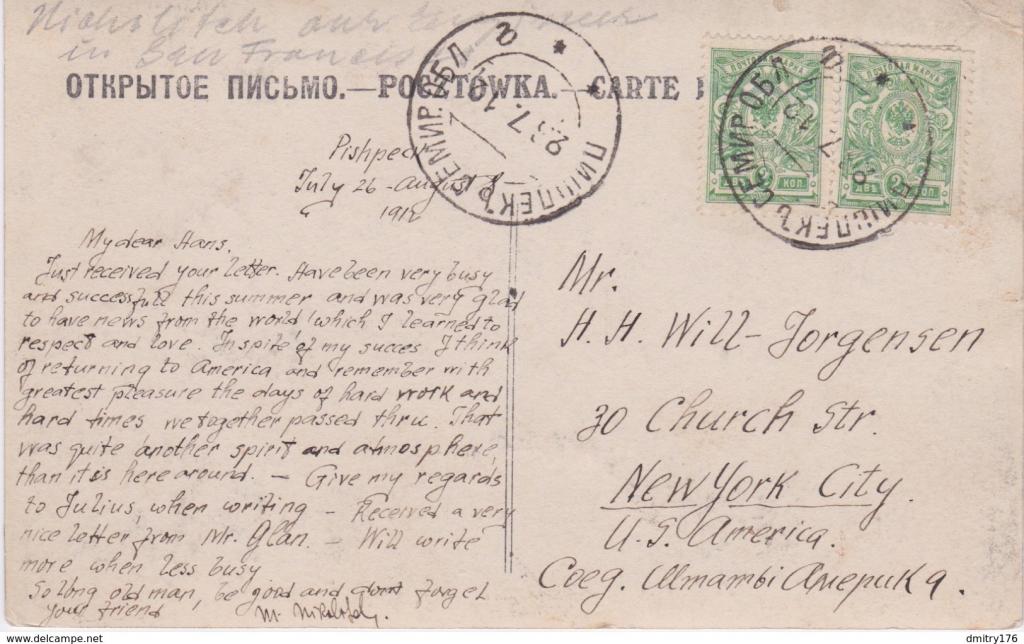 in San Francis
ОТКРЫТОЕ ПИСЬМО.—POCZTÓWKA.—CARTE
ПИШПЕКЪ СЕМИР. ОБЛ.
ПИШПЕКЪ СЕМИР. ОБЛ.
ПОЧТОВАЯ МАРКА
ПОЧТОВАЯ МАРКА
КОП.
ДВѢ 2 КОП.
Pishpeck
July 26 - August 8
1912
My dear Hans.
Just received your letter. Have been very busy
and successfull this summer and was very glad
to have news from the world which I learned to
respect and love. In spite of my succes I think
of returning to America, and remember with
greatest pleasure the days of hard work and
hard times we together passed thru. That
was quite another spirit and atmosphere,
than it is here around. — Give my regards
to Julius, when writing — Received a very
nice letter from Mr. Glan. — Will write
more when less busy
So long old man, be good and dont forget
your friend
Mr.
H. H. Will-Jorgensen
30 Church Str.
New York City.
U.S. America.
Соед. Штаты Америка.
delcampe.net
dmitry176